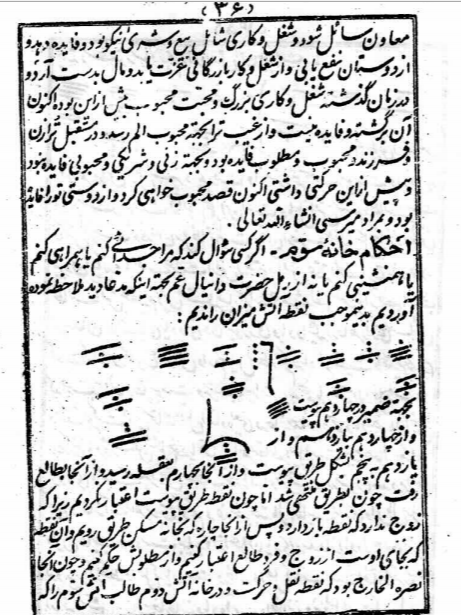 (۳۶)
معاون سائل شود و شغل و کاری شائل بیع و شری نیکو بود و فایده دهد و
از دوستان نفع یابی و از شغل و کار بازرگانی عزت یابد و مال بدست آرد و
در زمان گذشته شغل و کاری بزرگ و محنت محبوب پیش ازین بوده اکنون
آن برگشته و فایده نیست و از غیب ترا بجهة محبوب الم رسد و در مستقبل ترا زن
و فرزند و محبوب و مطلوب فایده بود و بجهة زنی و شریکی و محبوبی فایده بود
و پیش ازاین حرکتی داشتی اکنون قصد محبوب خواهی کرد و از دوستی تورا فایده
بود و بمراد میرسی انشاء الله تعالی .
احکام خانهٔ سوم - اگر کسی سؤال کند که مرا جدائی کنم یا همراهی کنم
یا همنشینی کنم یا نه از رمل حضرت دانیال عم بجهة اینکه مدعا دید ملاحظه نموده
آوردیم بدینموجب نقطه آتش میزان راندیم :
بجهة ضمیر در چهاردهم پیوست
و از چهاردهم بیازدهم و از
یازدهم به پنجم بشکل طریق پیوست و از آنجا بچهارم رسید و از آنجا بطالع
رفت چون بطریق منتهی شد اما چون نقطه طریق پیوست اعتبار نکردیم زیرا که
زوج ندارد که نقطه باز دارد و پس از آنجا چاره که بخانه مسکن طریق رویم و آن نقطه
که بجای اوست از زوج و فرد طالع اعتبار کنیم و از مطلوبش حکم کنیم و چون آنجا
نصرة الخارج بود که نقطه نقل حرکت و در خانه آتش دوم طالب آتش سوم را که